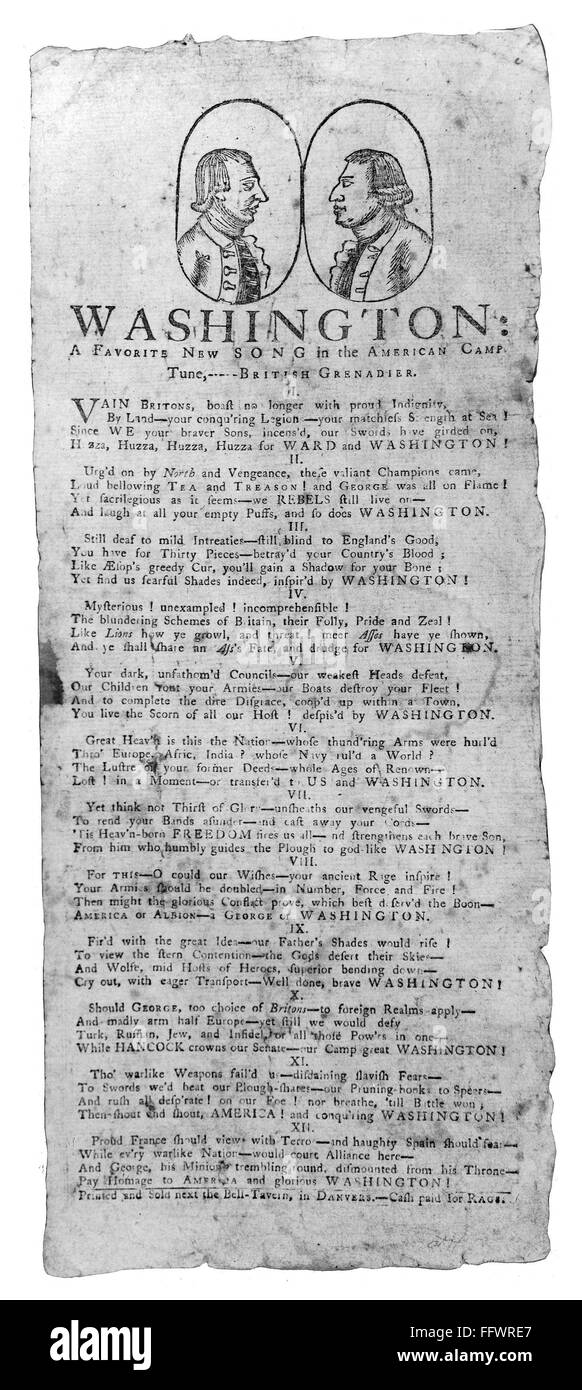 WASHINGTON:
A FAVORITE NEW SONG in the AMERICAN CAMP.
Tune,-----BRITISH GRENADIER.
VAIN BRITONS, boaſt no longer with proud Indignity,
By Land—your conqu'ring Legion —your matchleſs S rength at Sea !
Since WE your braver Sons, incens'd, our Swords have girded on,
H zza, Huzza, Huzza, Huzza for WARD and WASHINGTON !
II.
Urg'd on by North and Vengeance, theſe valiant Champions came,
Loud bellowing TEA and TREASON ! and GEORGE was all on Flame !
Yet ſacrilegious as it ſeems—we REBELS ſtill live on—
And laugh at all your empty Puffs, and ſo does WASHINGTON.
III.
Still deaf to mild Intreaties—ſtill blind to England's Good,
You have for Thirty Pieces—betray'd your Country's Blood ;
Like Æſop's greedy Cur, you'll gain a Shadow for your Bone ;
Yet find us fearful Shades indeed, inſpir'd by WASHINGTON !
IV.
Myſterious ! unexampled ! incomprehenſible !
The blundering Schemes of B itain, their Folly, Pride and Zeal !
Like Lions how ye growl, and threat ! meer Aſſes have ye ſhown,
And ye ſhall ſhare an Aſs's Fate, and drudge for WASHINGTON.
V.
Your dark, unfathom'd Councils—our weakeſt Heads defeat,
Our Children rout your Armies—our Boats deſtroy your Fleet !
And to complete the dire Diſgrace, coop'd up within a Town,
You live the Scorn of all our Hoſt ! deſpis'd by WASHINGTON.
VI.
Great Heav'n is this the Nation—whoſe thund'ring Arms were hurl'd
Thro' Europe, Afric, India ? whoſe Navy rul'd a World ?
The Luſtre of your former Deeds—whole Ages of Renown—
Loſt ! in a Moment—or transfer'd to US and WASHINGTON.
VII.
Yet think not Thirſt of Glory—unſheaths our vengeful Swords—
To rend your Bands aſunder—and caſt away your Cords—
'Tis Heav'n-born FREEDOM fires us all— nd ſtrengthens each brave Son,
From him who humbly guides the Plough to god-like WASHINGTON !
VIII.
For THIS—O could our Wiſhes—your ancient Rage inſpire !
Your Armies ſhould be doubled—in Number, Force and Fire !
Then might the glorious Conflict prove, which beſt deſerv'd the Boon—
AMERICA or ALBION—a GEORGE or WASHINGTON.
IX.
Fir'd with the great Idea—our Father's Shades would riſe !
To view the ſtern Contention—the Gods deſert their Skies—
And Wolfe, mid Hoſts of Heroes, ſuperior bending down—
Cry out, with eager Tranſport—Well done, brave WASHINGTON !
X.
Should GEORGE, too choice of Britons—to foreign Realms apply—
And madly arm half Europe—yet ſtill we would defy
Turk, Ruſſian, Jew, and Infidel, or all thoſe Pow'rs in one—
While HANCOCK crowns our Senate—our Camp great WASHINGTON !
XI.
Tho' warlike Weapons fail'd us—diſdaining ſlaviſh Fears—
To Swords we'd beat our Plough-ſhares—our Pruning-hooks to Spears—
And ruſh all deſp'rate ! on our Foe ! nor breathe, 'till Battle won ;
Then ſhout and ſhout, AMERICA ! and conqu'ring WASHINGTON !
XII.
Proud France ſhould view with Terror—and haughty Spain ſhould fear—
While ev'ry warlike Nation—would court Alliance here—
And George, his Minions trembling round, diſmounted from his Throne—
Pay Homage to AMERICA and glorious WASHINGTON !
Printed and Sold next the Bell-Tavern, in DANVERS.—Caſh paid for RAGS.
alamy
alamy
Image ID: FFWRE7
www.alamy.com